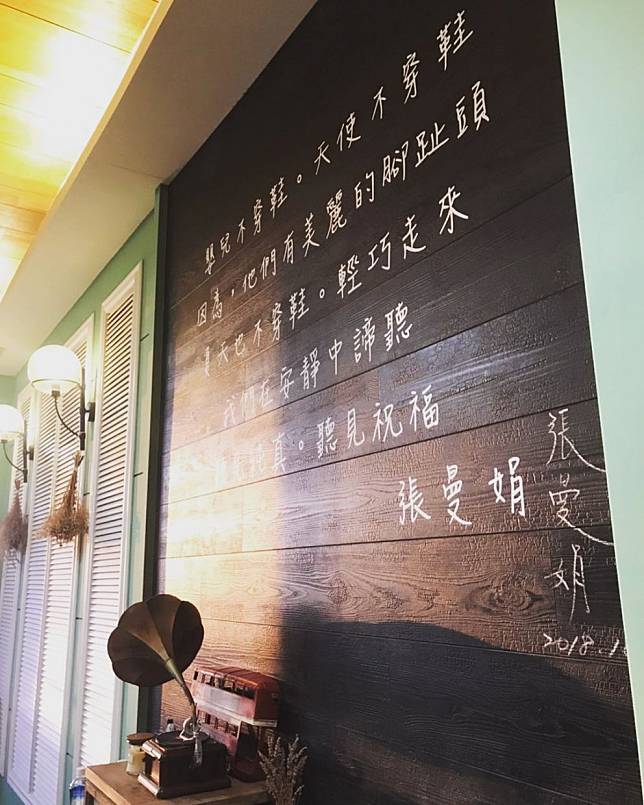 嬰兒不穿鞋。天使不穿鞋
因為，他們有美麗的腳趾頭
夏天也不穿鞋。輕巧走來
我們在安靜中諦聽
純真。聽見祝福
張曼娟
張曼娟
2018.1